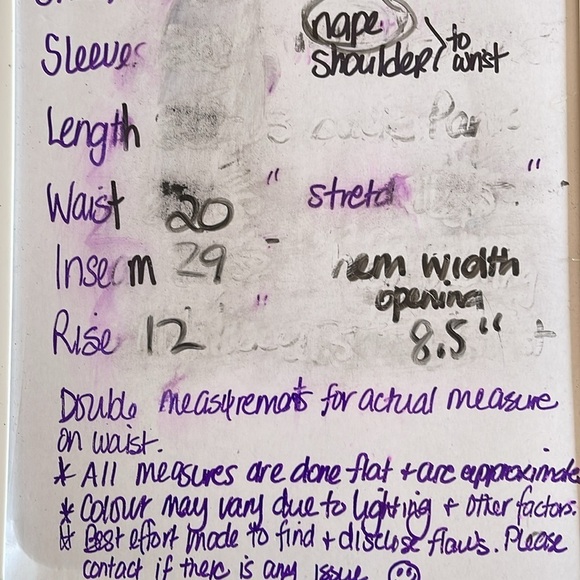 nape
Sleeves shoulder > to wrist
Length
Waist 20 " stretch "
Inseam 29
hem width
opening
Rise 12 " 8.5"
Double measurements for actual measure
on waist.
* All measures are done flat + are approximate
* Colour may vary due to lighting + other factors.
* Best effort made to find + disclose flaws. Please
contact if there is any issue